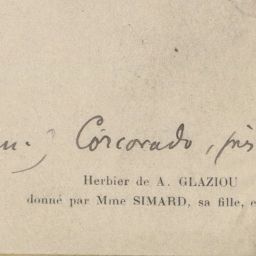 Corcovado, près
Herbier de A. GLAZIOU
donné par Mme SIMARD, sa fille, e